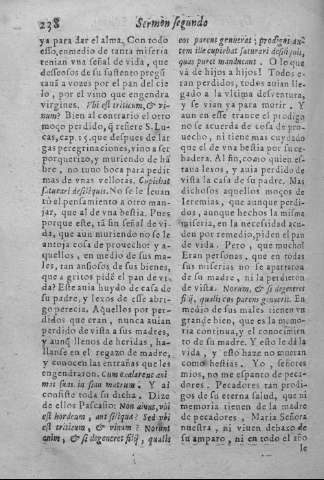 238 Sermon segundo
ya para dar el alma. Con todo
esso, en medio de tanta miseria
tenian vna señal de vida, que
desseosos de su sustento pregũ
tauã a vozes por el pan del cie
lo, por el vino que engendra
virgines. Vbi est triticum, & vi-
num? Bien al contrario el otro
moço perdido, q̃ refiere S. Lu-
cas, cap. 15. que despues de lar
gas peregrinaciones, vino a ser
porquerizo, y muriendo de hã
bre, no tuuo boca para pedir
mas de vnas vellotas. Cupiebat
saturari de siliquis. No se le leuan
tò el pensamiento a otro man-
jar, que al de vna bestia. Pues
porque este, si a ñ señal de vi-
da, que aun muriendo no se le
antoja cosa de prouecho? y a-
quellos, en medio de sus ma-
les, tan ansiosos de sus bienes,
que a gritos pidẽ el pan de vi-
da? Este auia huydo de casa de
su padre, y lexos de esse abri-
go perecia. Aquellos por per-
didos que eran, nunca auian
perdido de vista a sus madres,
y aunq̃ llenos de heridas, ha-
llanse en el regazo de madre,
y conocen las entrañas que les
engendraron. Cum exalarent ani
mas suas in sinu matrum. Y al
consiste toda su dicha. Dize
de ellos Pascasio: Non aiunt, vbi
est hordeum, aut siliquæ? Sed vbi
est triticum, & vinum? Norunt
enim, & si degeneret filij, qualis
eos parens genuerat; prodigus au-
tem ille cupiebat saturari de siliquis,
quas porci manducant. O lo que
vá de hijos à hijos! Todos e-
ran perdidos, todos auian lle-
gado a la vltima desventura,
y se vian ya para morir. Y
aun en esse trance el prodigo
no se acuerda de cosa de pro-
uecho, ni tiene mas cuydado
que el de vna bestia por su ce-
badera. Al fin, como quien es-
taua lexos, y auia perdido de
vista la casa de su padre. Mas
dichosos aquellos moços de
Ieremias, que aunque perdi-
dos, aunque hechos la misma
miseria, en la necessidad acu-
den por remedio, piden el pan
de vida. Pero, que mucho!
Eran personas, que en todas
sus miserias no se apartaron
de su madre, ni la perdieron
de vista. Norunt, & si degeneret
filij, qualis eos parens genuerit. En
medio de sus males tienen vn
grande bien, que es la memo-
ria continua, y el conocimien
to de su madre. Y esto le dà la
vida, y esto haze no mueran
como bestias. Yo, señores
mios, no me espanto de peca-
dores. Pecadores tan prodi-
gos de su eterna salud, que ni
memoria tienen de la madre
de pecadores, Maria Señora
nuestra, ni viuen debaxo de
su amparo, ni en todo el año
le